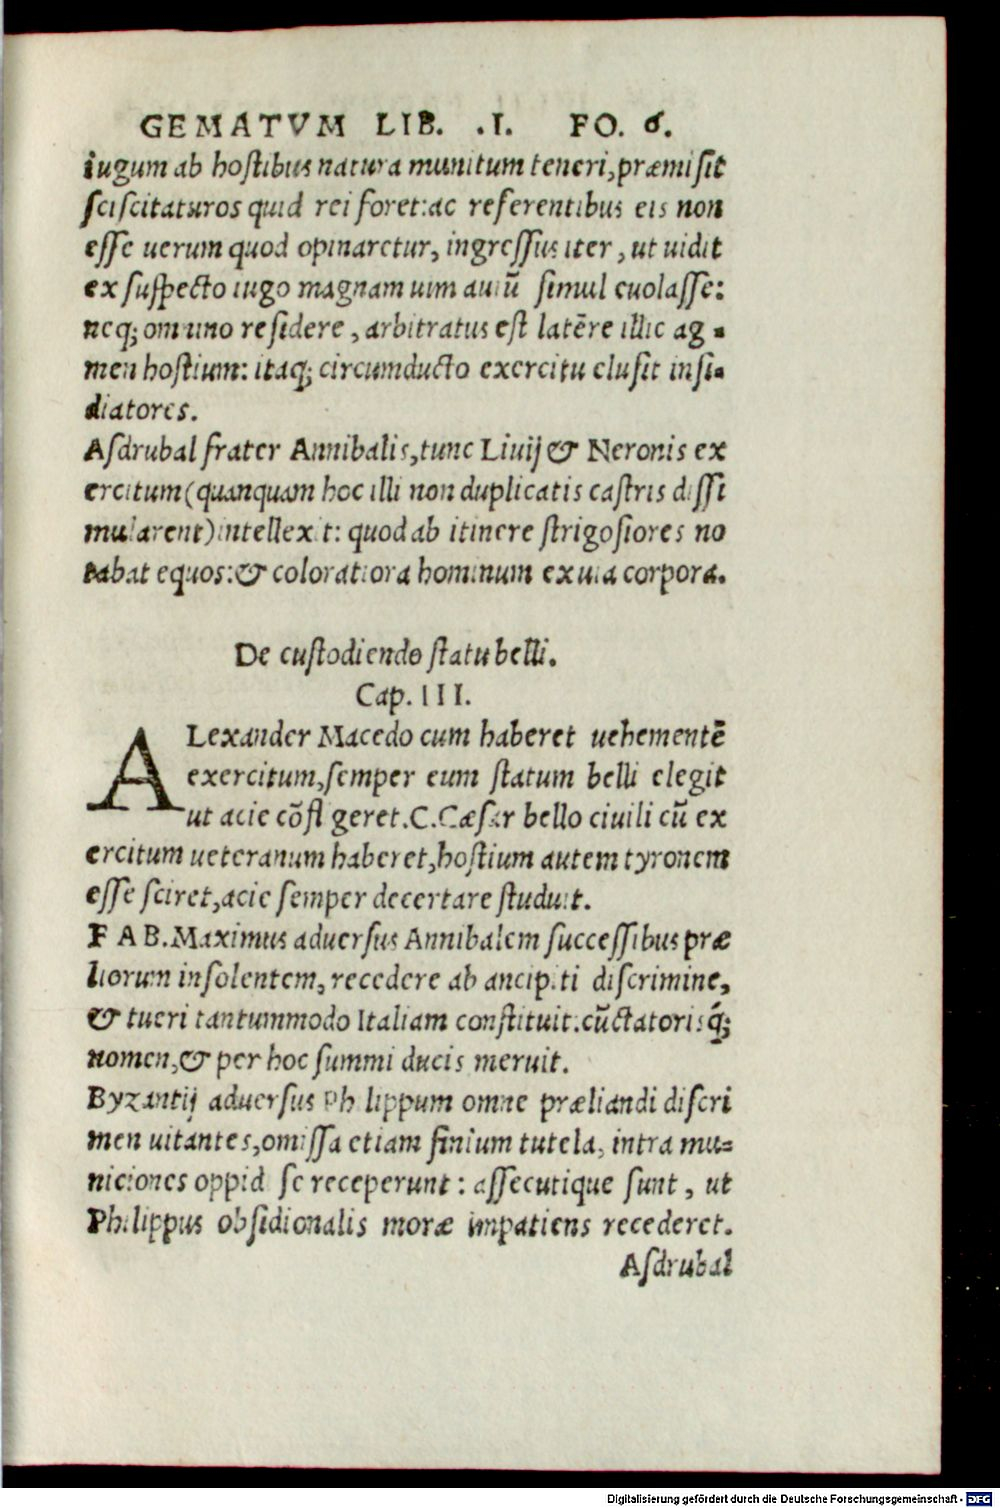 GEMATVM LIB. .I. FO. 6.
iugum ab hostibus natura munitum teneri, præmisit
sciscitaturos quid rei foret: ac referentibus eis non
esse uerum quod opinaretur, ingressus iter, ut uidit
ex suspecto iugo magnam uim auiū simul euolasse:
neq; omnino residere, arbitratus est latēre illic ag-
men hostium: itaq; circumducto exercitu elusit insi-
diatores.
Asdrubal frater Annibalis, tunc Liuij & Neronis ex
ercitum (quanquam hoc illi non duplicatis castris dissi
mularent) intellexit: quod ab itinere strigosiores no
tabat equos: & coloratiora hominum ex uia corpora.
De custodiendo statu belli.
Cap. III.
ALexander Macedo cum haberet uehementē
exercitum, semper eum statum belli elegit
ut acie cōfligeret. C. Cæsar bello ciuili cū ex
ercitum ueteranum haberet, hostium autem tyronem
esse sciret, acie semper decertare studuit.
FAB. Maximus aduersus Annibalem successibus præ
liorum insolentem, recedere ab ancipiti discrimine,
& tueri tantummodo Italiam constituit. cūctatorisq́;
nomen, & per hoc summi ducis meruit.
Byzantij aduersus Philippum omne præliandi discri
men uitantes, omissa etiam finium tutela, intra mu-
niciones oppidi se receperunt: assecutique sunt, ut
Philippus obsidionalis moræ impatiens recederet.
Asdrubal
Digitalisierung gefördert durch die Deutsche Forschungsgemeinschaft - DFG